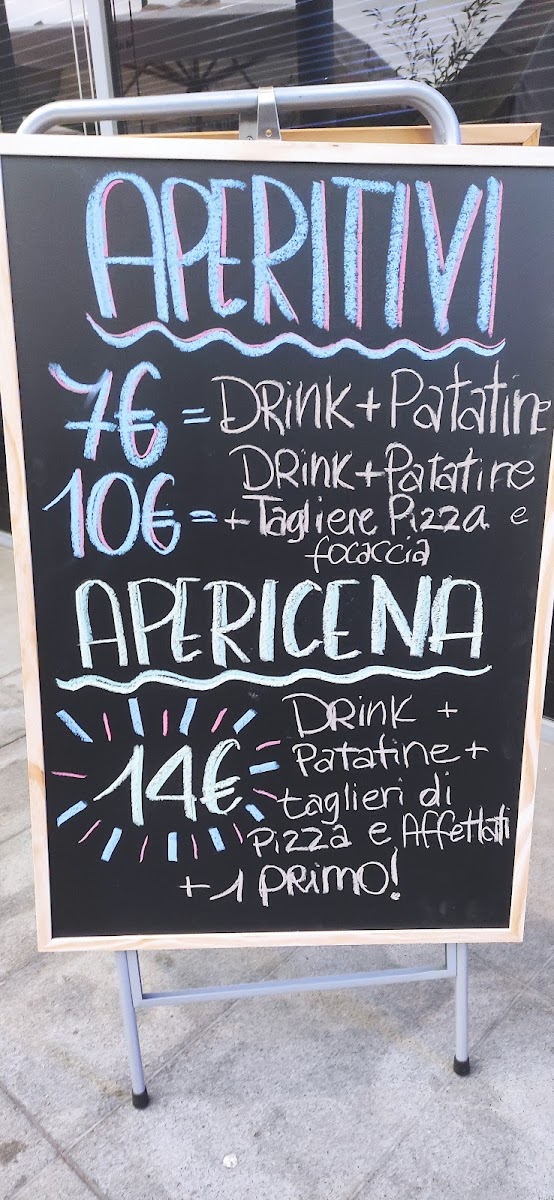 APERITIVI
7€ = DRink + Patatine
DRink + Patatine
10€ = + Tagliere Pizza e
focaccia
APERICENA
DRink +
14€ Patatine +
taglieri di
Pizza e Affettati
+ 1 PRIMO!